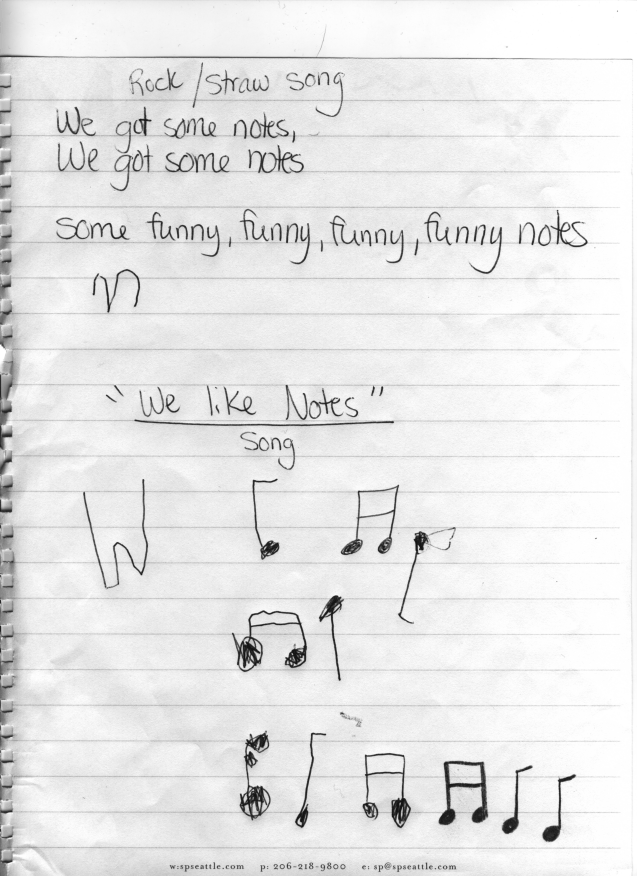 Rock / Straw song
We got some notes,
We got some notes
some funny, funny, funny, funny notes
"We like Notes"
Song
W
w:spseattle.com p: 206-218-9800 e: sp@spseattle.com